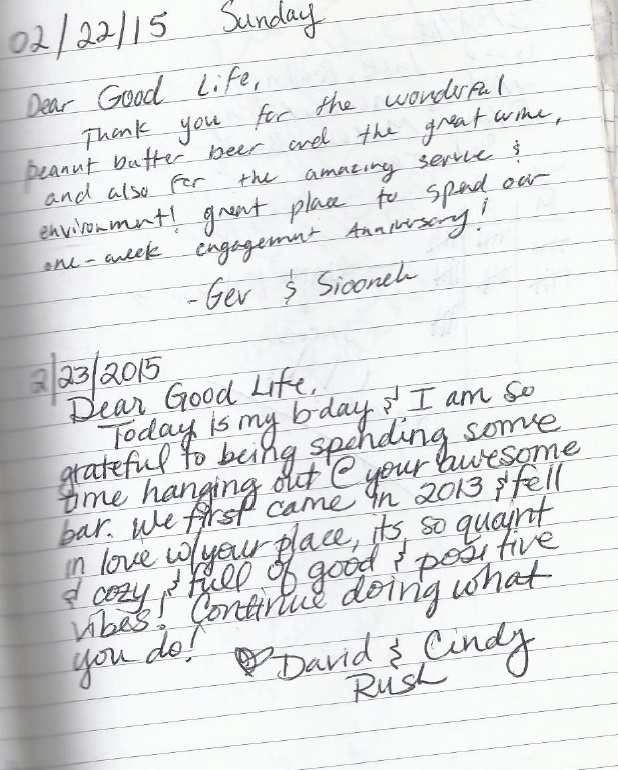 02/22/15 Sunday
Dear Good Life,
Thank you for the wonderful
peanut butter beer and the great wine,
and also for the amazing service &
environment! great place to spend our
one-week engagement Anniversary!
- Gev & Siooneh
2/23/2015
Dear Good Life,
Today is my b-day & I am so
grateful to being spending some
time hanging out @ your awesome
bar. We first came in 2013 & fell
in love w/ your place, its so quaint
& cozy & full of good & positive
vibes! Continue doing what
you do!
♡ David & Cindy
Rush